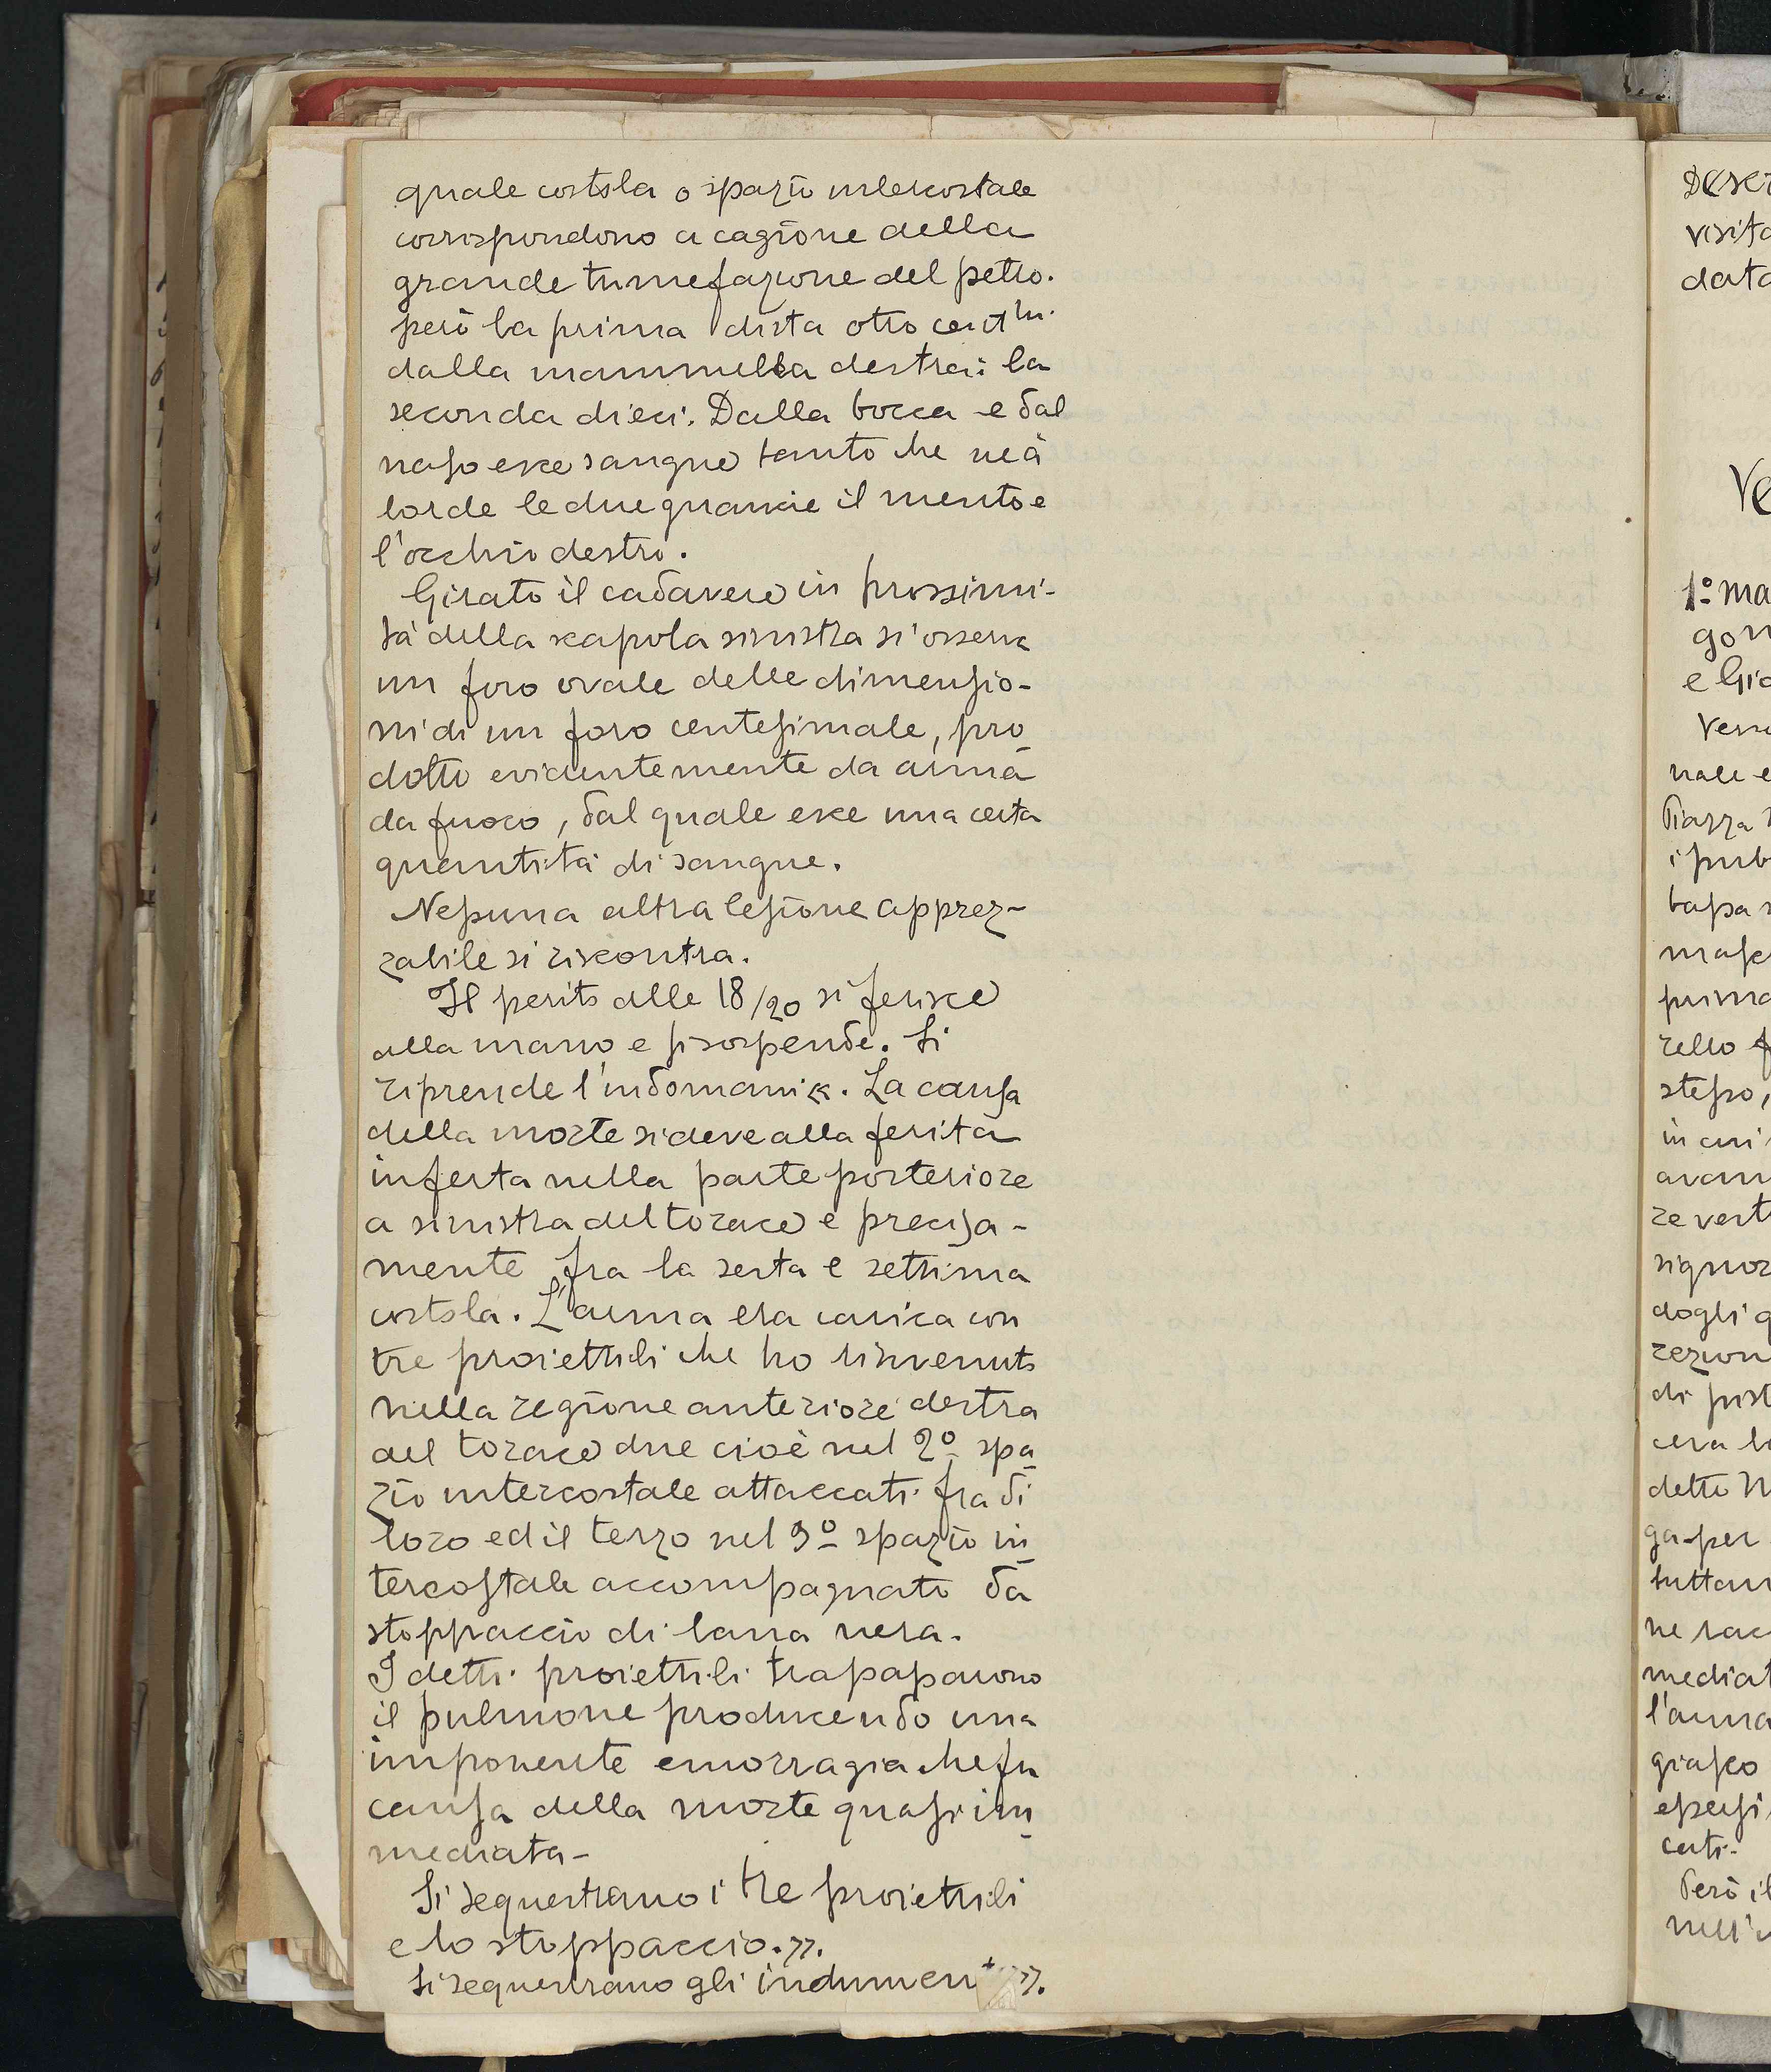 quale costola o spazio intercostale
corrispondono a cagione della
grande tumefazione del petto.
però la prima dista otto centm.
dalla mammella destra: la
seconda dieci. Dalla bocca e dal
naso esce sangue tanto che ne à
lorde le due guancie il mento e
l'occhio destro.
Girato il cadavere in prossimi-
tà della scapola sinistra si osserva
un foro ovale delle dimensio-
ni di un foro centesimale, pro
dotto evidentemente da arma
da fuoco, dal quale esce una certa
quantità di sangue.
Nessuna altra lesione apprez-
zabile si riscontra.
Il perito alle 18/20 si ferisce
alla mano e si sospende. Si
riprende l'indomani. La causa
della morte si deve alla ferita
inferta nella parte posteriore
a sinistra del torace e precisa-
mente fra la sesta e settima
costola. L'arma era carica con
tre proiettili che ho rinvenuto
nella regione anteriore destra
del torace due cioè nel 2º spa
zio intercostale attaccati fra di
loro ed il terzo nel 3º spazio in
tercostale accompagnato da
stoppaccio di lana nera.
I detti proiettili trapassarono
il pulmone producendo una
imponente emorragia che fu
causa della morte quasi im
mediata-
Si sequestrano i tre proiettili
e lo stoppaccio.».
Si sequestrano gli indument ».
visita
data
1º
e
Piazza
in cui
di
detto
ga-per
l'arma
Però il